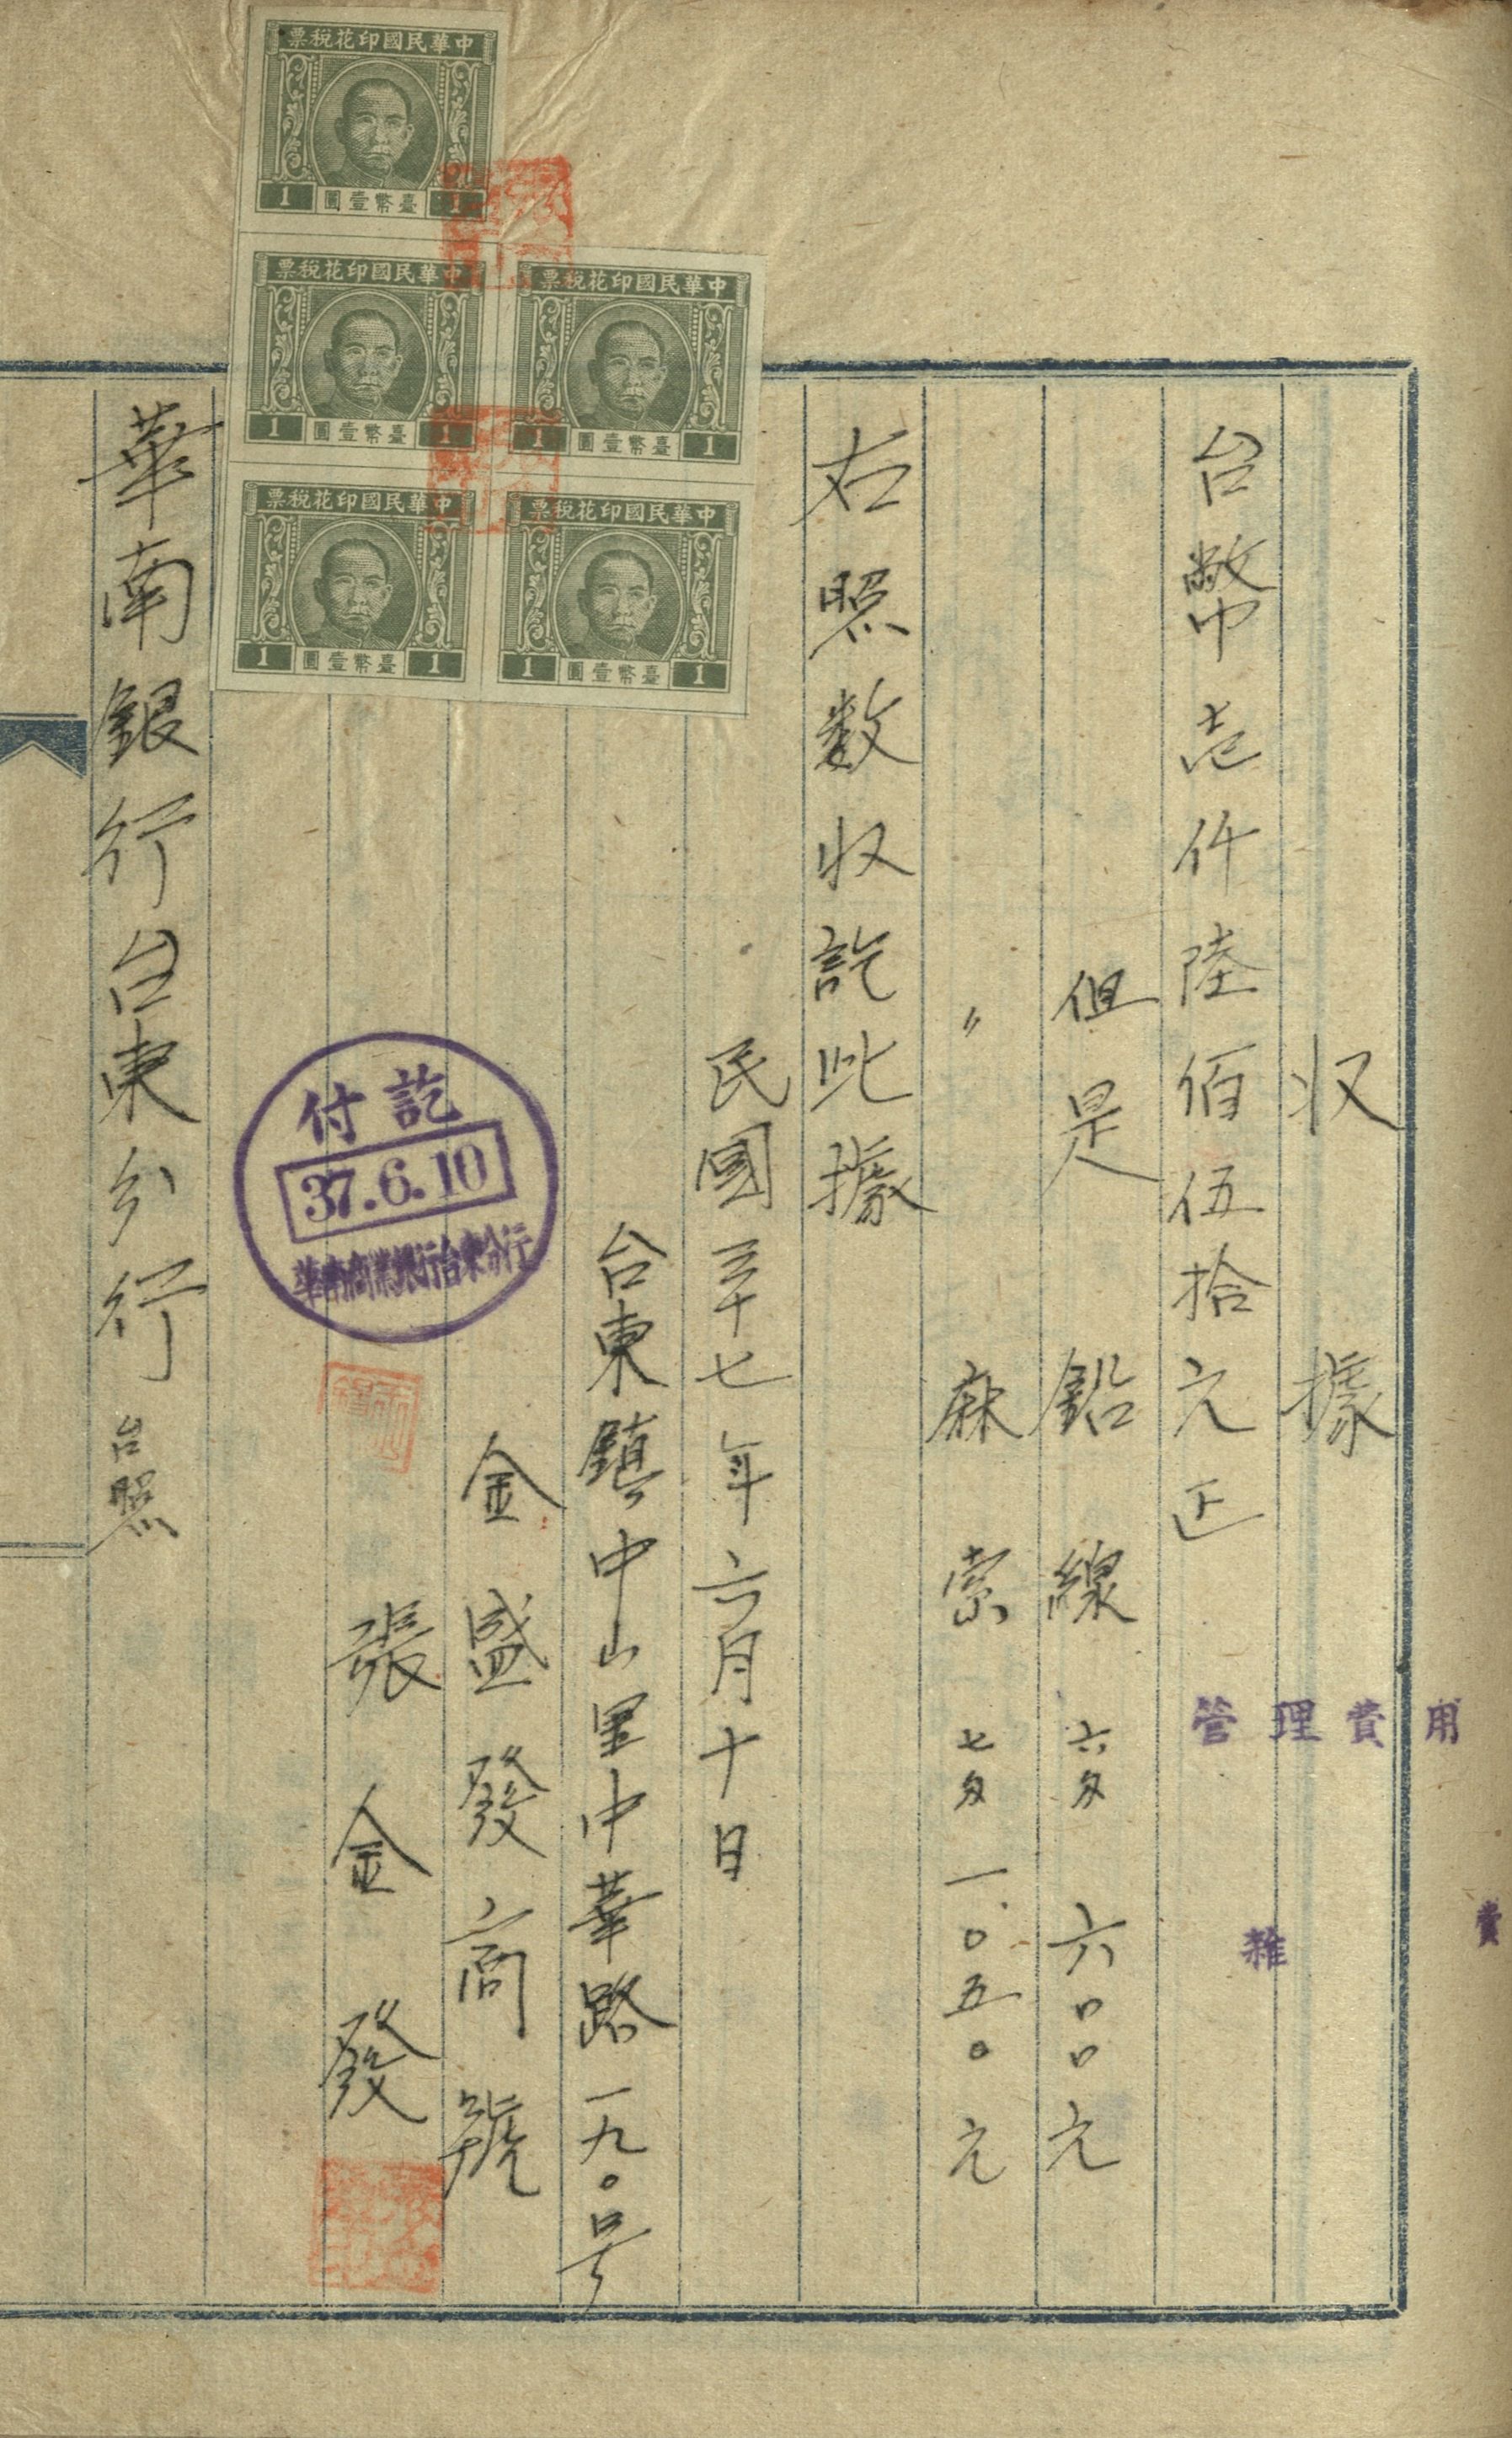 收據
台幣壱仟陸佰伍拾元正
但是 鉛線 六匁 六〇〇元
〃 麻索 七匁 一.〇五〇元
右照数收訖此據
民國三十七年六月十日
台東鎮中山里中華路一九〇号
金盛發商號
張金發
華南銀行台東分行 台照
管理費用
雜費
付訖
37.6.10
華南商業銀行台東分行
中華民國印花稅票
1 臺幣壹圓 1
中華民國印花稅票
1 臺幣壹圓 1
中華民國印花稅票
1 臺幣壹圓 1
中華民國印花稅票
1 臺幣壹圓 1
中華民國印花稅票
1 臺幣壹圓 1